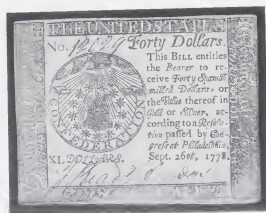 THE UNITED STATES
No. Forty Dollars.
This BILL entitles
the Bearer to re-
ceive Forty Spanish
milled Dollars, or
the Value thereof in
Gold or Silver, ac-
cording to a Resolu-
tion passed by Con-
gress at Philadelphia,
Sept. 26th, 1778.
CONFEDERATION
XL DOLLARS.